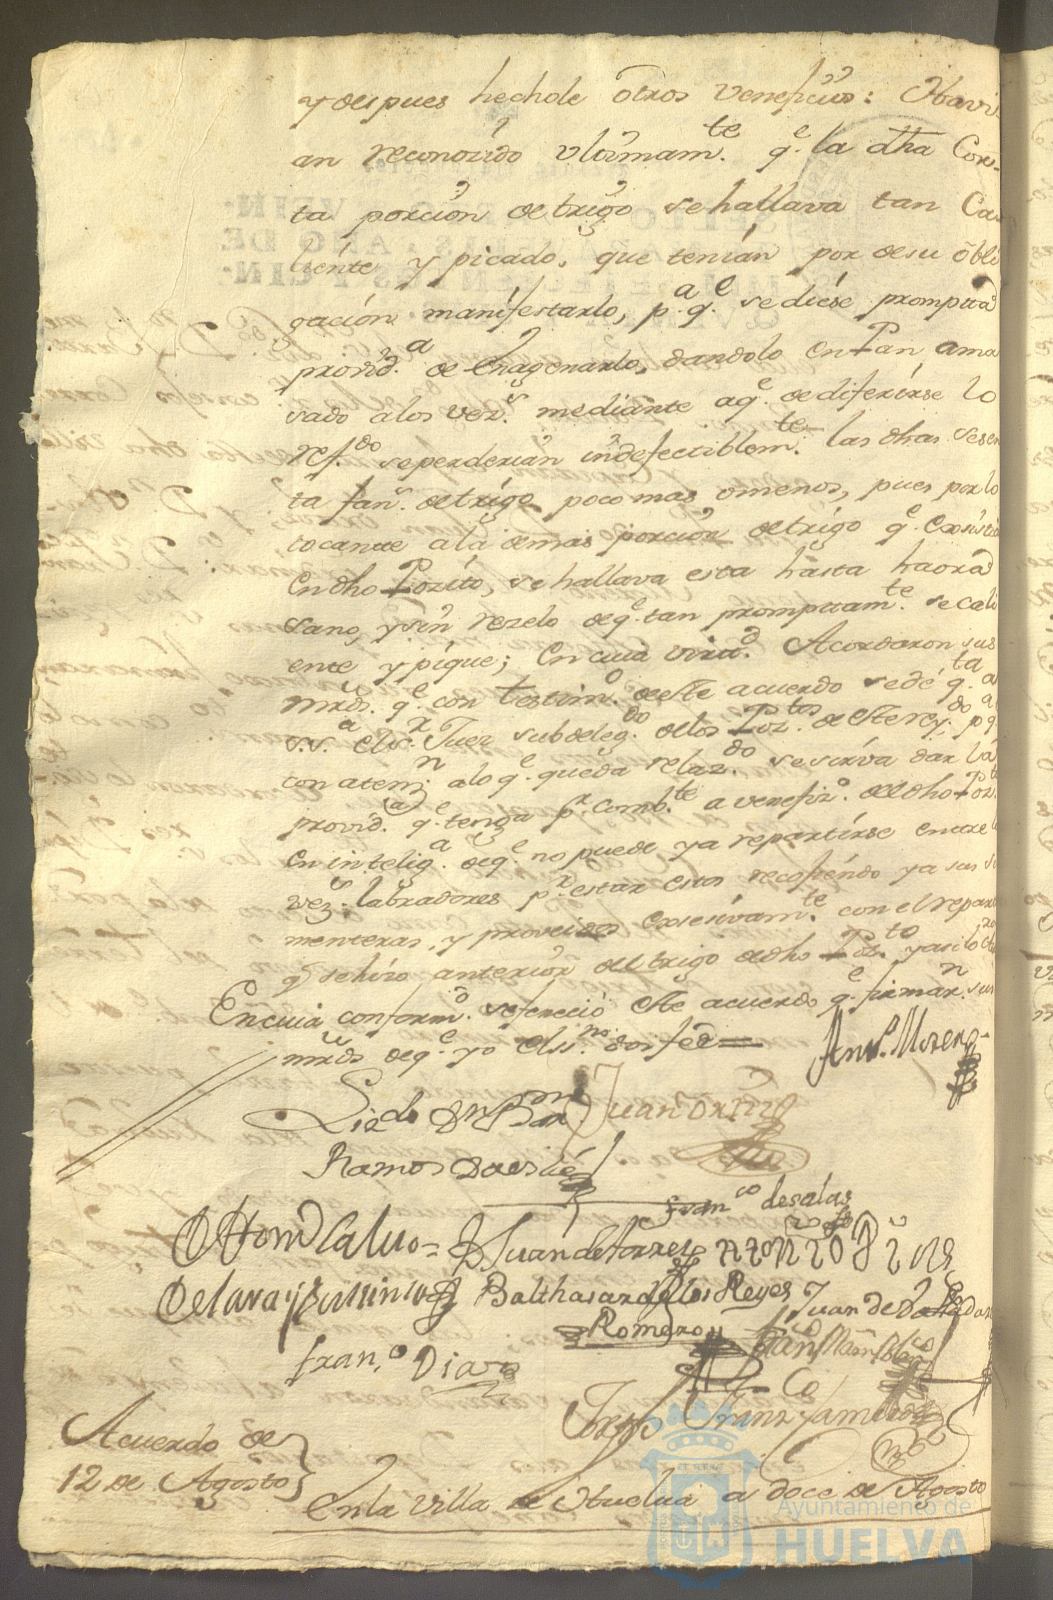 y despues hechole otros veneficios: Havi-
an reconozido vltimam.te q.e la dha Cor-
ta porcion de trigo se hallava tan Ca-
liente y picado, que tenian por de su obli
gacion manifestarlo, p.a q.e se diese prompta
provid.a de Enagenarlo, dandolo en Pan ama
sado a los vez.s mediante a q.e de diferirse lo
ref.do se perderian indefectiblem.te las dhas sesen
ta fan.s de trigo poco mas o menos, pues por lo
tocante a la demas porcion de trigo q.e Existia
En dho Pozito, se hallava esta hasta haora
sano, y sin rezelo de q.e tan promptam.te se cali
ente y pique; En cuia virtd. Acordaron sus
mrds. q.e con testim.o de este acuerdo se dé q.ta a
s.s.a el s.r Juez subdeleg.do de los Poz.tos de este rey.do p.a q.e
con aten.n a lo q.e queda relaz.do se sirva dar la
provid.a q.e tenga p.r comb.te a venefiz.o del dho Poz.to
En intelig.a de q.e no puede ya repartirse entre
vez.s labradores p.r estar estos recojiendo ya sus se
menteras, y proveidos Exsesivam.te con el repart
q.e se hizo anterior del trigo de dho Poz.to y asi lo
En cuia conform.d se fenecio este acuerdo q.e firmar.n sus
mrds de q.e yo el ss.no doi fee =
Ant.o Moreno
Liz.do Dn Bar.me
Juan Ortiz
Ramos Davila
Fran.co de salas
Thom Calvo = D Juan de torres Alonso Diaz
De Lara y Balthasar de los Reyes Juan de
Romero
Juan Mrn Blan
Fran.co Diaz
Co
Jorge Franz
Acuerdo de
12 de Agosto
En la villa de Huelva a doce de Agosto
Ayuntamiento de
HUELVA